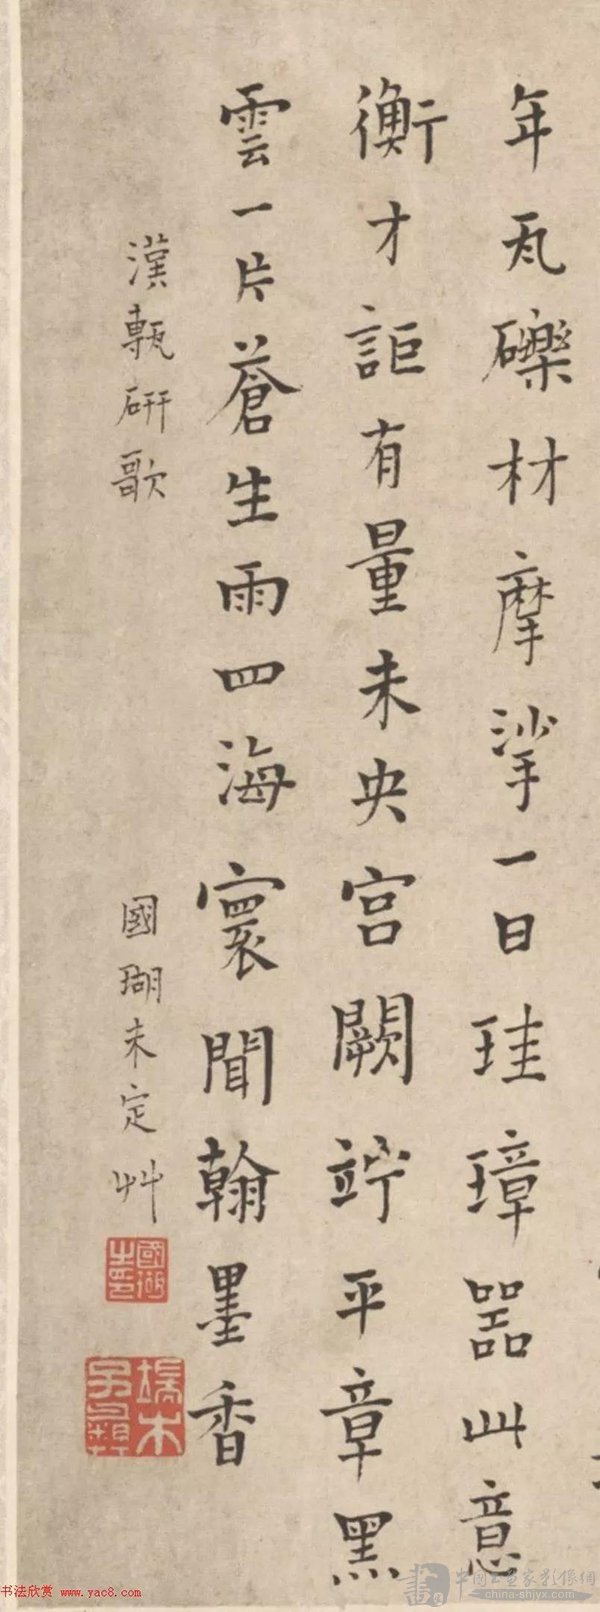 年瓦礫材摩挲一日珪璋器此意
衡才詎有量未央宮闕竚平章黑
雲一片蒼生雨四海寰聞翰墨香
漢甎硏歌
國瑚未定艸
國瑚
之印
端木
书法欣赏 www.yac8.com
中国书画家影像网
china-shjyx.com